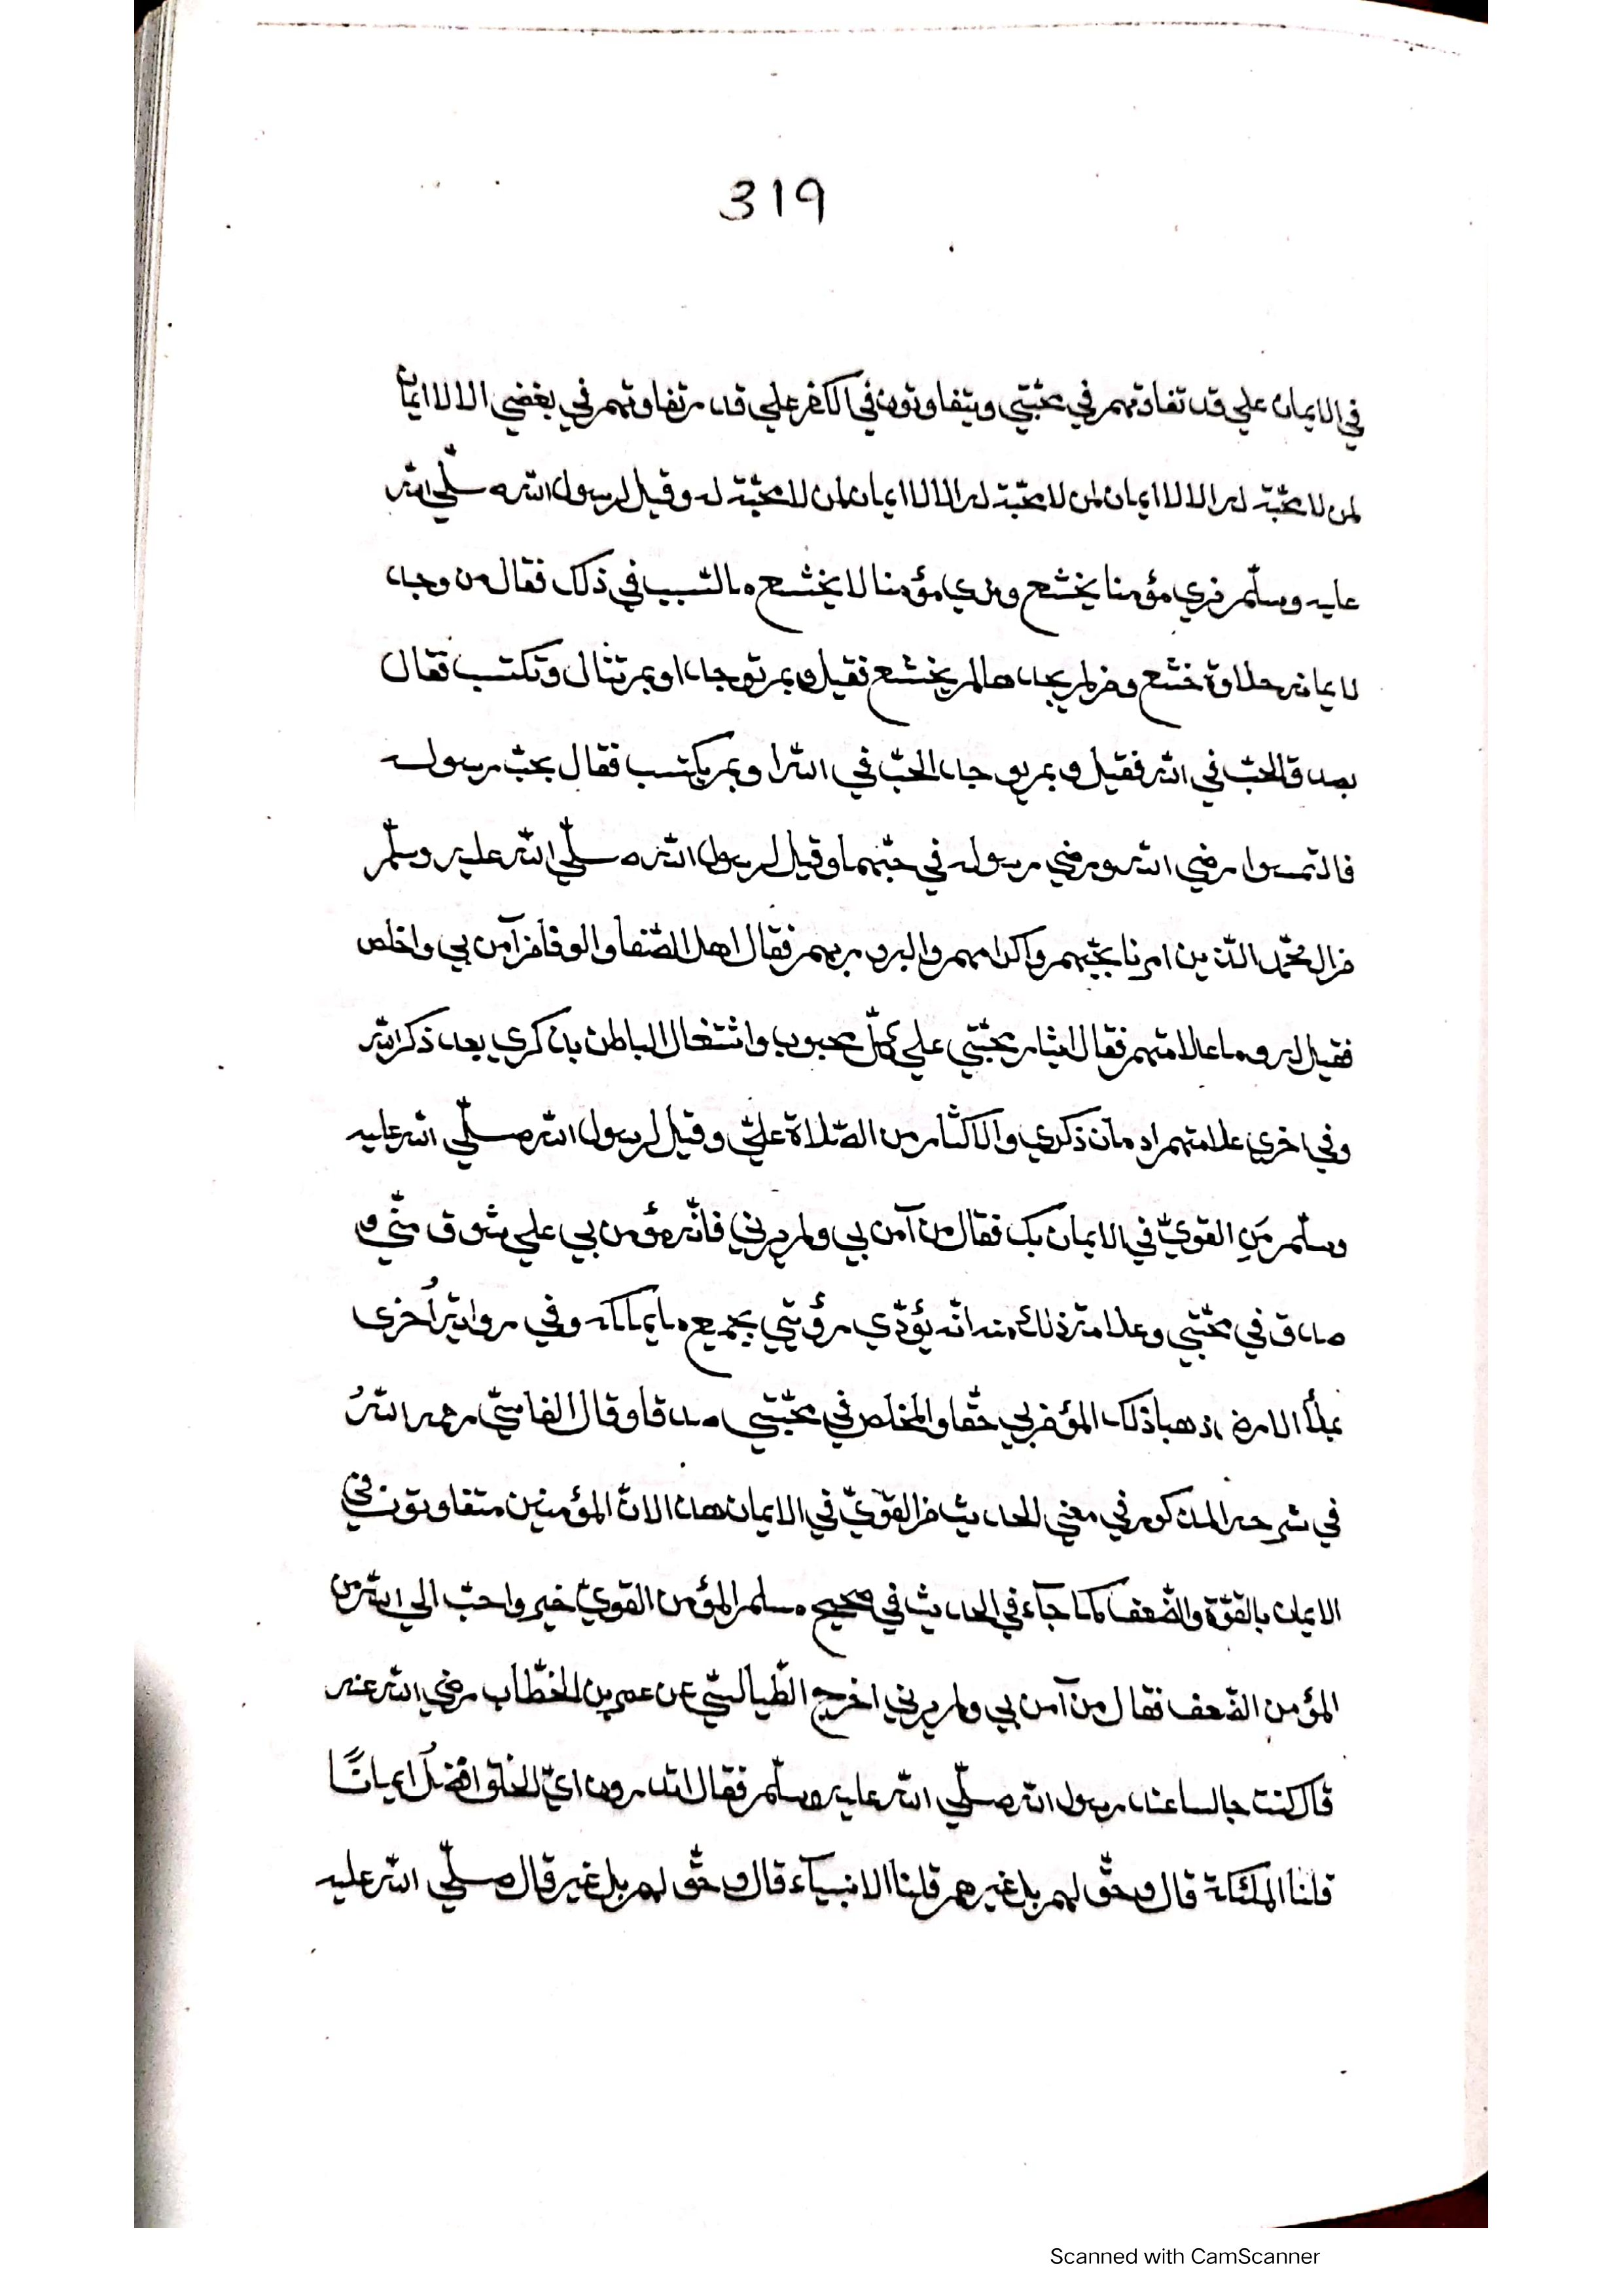 319
في الايمان علي قدر تفاوتهم في محبّتي ويتفاوتون في الكفر علي قدر تفاوتهم في بغضي الا لا ايمان
لمن لا محبّة له الا لا ايمان لمن لا محبّة له الا لا ايمان لمن لا محبّة له وقيل لرسول الله صلّي الله
عليه وسلّم نري مؤمنا يخشع ونري مؤمنا لا يخشع ما السّبب في ذلك فقال من وجد
لايمانه حلاوة خشع ومن لم يجدها لم يخشع فقيل وبم توجد او بم تنال وتكتسب فقال
بصدق الحبّ في الله فقيل وبم يوجد الحبّ في الله او بم يكتسب فقال بحبّ رسوله
فالتمسوا رضي الله ورضي رسوله في حبّهما وقيل لرسول الله صلّي الله عليه وسلّم
من ال محمّد الّذين امرنا بحبّهم واكرامهم والبرور بهم فقال اهل الصّفا والوفا من آمن بي واخلص
فقيل له وما علامتهم فقال ايثار محبّتي علي كلّ محبوب واشتغال الباطن بذكري بعد ذكر الله
وفي اخري علامتهم ادمان ذكري والاكثار من الصّلاة عليّ وقيل لرسول الله صلّي الله عليه
وسلّم مَنِ القويّ في الايمان بك فقال من آمن بي ولم يرني فانّه مؤمن بي علي شوق منّي و
صدق في محبّتي وعلامة ذلك منه انّه يؤدّي رؤيتي بجميع ما يملكه وفي رواية اُخرى
بملأ الارض ذهبا ذلك المؤمن بي حقّا والمخلص في محبّتي صدقا وقال الفاسيّ رحمه اللهُ
في شرحه المذكور في معني الحديث من القويّ في الايمان هذا لانّ المؤمنين متفاوتون في
الايمان بالقوّة والضّعف كما جآء في الحديث في صحيح مسلم المؤمن القويّ خير واحبّ الي الله من
المؤمن الضّعف فقال من آمن بي ولم يرني اخرج الطّيالسيّ عن عمر بن الخطّاب رضي الله عنه
قال كنت جالسا عند رسول الله صلّي الله عليه وسلّم فقال اتدرون ايّ الخلق افضلُ ايمانًا
قلنا الملئكة قال وحقّ لهم بل غيرهم قلنا الانبيآء قال وحقّ لهم بل غير قال صلّي الله عليه
Scanned with CamScanner